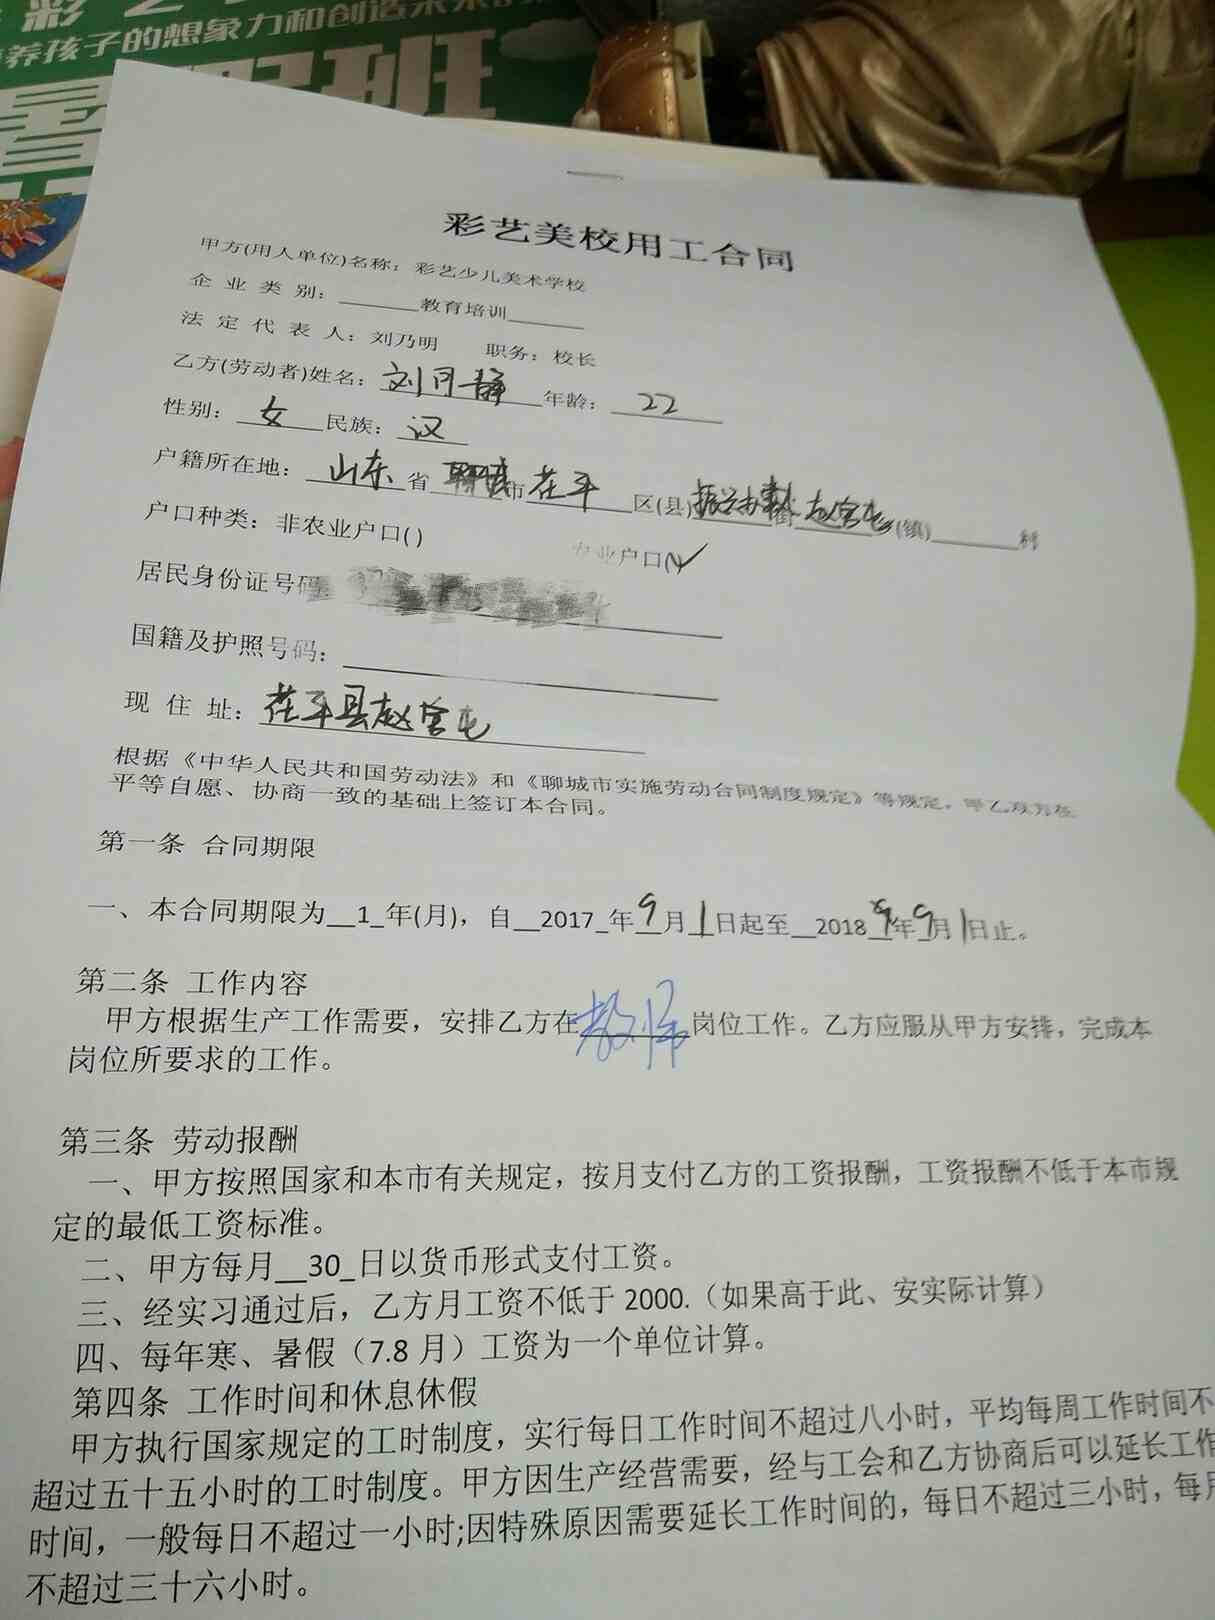 养孩子的想象力和创造未来
班
彩艺美校用工合同
甲方(用人单位)名称：彩艺少儿美术学校
企 业 类 别：______教育培训______
法 定 代 表 人：刘乃明 职务：校长
乙方(劳动者)姓名：刘月静 年龄：22
性别：女 民族：汉
户籍所在地：山东省聊城市茌平区(县)振兴办事 街 赵官屯 乡(镇)______村
户口种类：非农业户口( ) 农业户口(✓
居民身份证号码
国籍及护照号码：
现 住 址：茌平县赵官屯
根据《中华人民共和国劳动法》和《聊城市实施劳动合同制度规定》等规定，甲乙双方在
平等自愿、协商一致的基础上签订本合同。
第一条 合同期限
一、本合同期限为__1_年(月)，自__2017_年9月1日起至__2018年9月1日止。
第二条 工作内容
甲方根据生产工作需要，安排乙方在教师岗位工作。乙方应服从甲方安排，完成本
岗位所要求的工作。
第三条 劳动报酬
一、甲方按照国家和本市有关规定，按月支付乙方的工资报酬，工资报酬不低于本市规
定的最低工资标准。
二、甲方每月__30_日以货币形式支付工资。
三、经实习通过后，乙方月工资不低于 2000.（如果高于此、安实际计算）
四、每年寒、暑假（7.8 月）工资为一个单位计算。
第四条 工作时间和休息休假
甲方执行国家规定的工时制度，实行每日工作时间不超过八小时，平均每周工作时间不
超过五十五小时的工时制度。甲方因生产经营需要，经与工会和乙方协商后可以延长工作
时间，一般每日不超过一小时;因特殊原因需要延长工作时间的，每日不超过三小时，每月
不超过三十六小时。